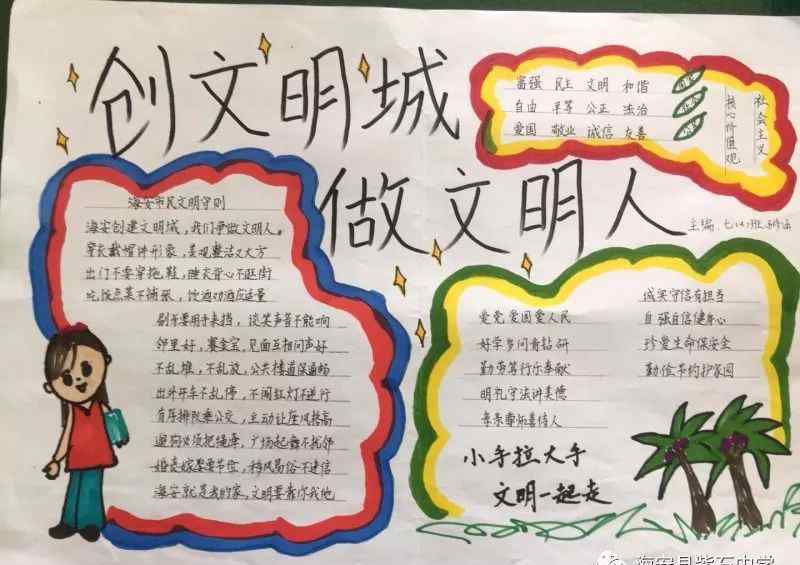 创文明城
做文明人
富强 民主 文明 和谐
自由 平等 公正 法治
爱国 敬业 诚信 友善
社会主义
核心价值观
主编 七 班
海安市民文明守则
海安创建文明城，我们争做文明人。
穿衣戴帽体形象，美观整洁又大方
出门不要穿拖鞋，睡衣背心不逛街
吃饭点菜不铺张，饮酒劝酒应适量
剔牙要用手来挡，谈笑声音不能响
邻里好，赛金宝，见面互相问声好
不乱堆，不乱放，公共楼道保通畅
出外开车不乱停，不闯红灯不逆行
有序排队乘公交，主动让座风格高
遛狗必须把绳牵，广场起舞不扰邻
婚丧嫁娶要节俭，移风易俗不迷信
海安就是我的家，文明要靠你我他
爱党爱国爱人民
好学多问肯钻研
勤劳笃行乐奉献
明礼守法讲美德
孝亲尊师善待人
诚实守信有担当
自强自信健身心
珍爱生命保安全
勤俭节约护家园
小手拉大手
文明一起走
海安县紫石中学